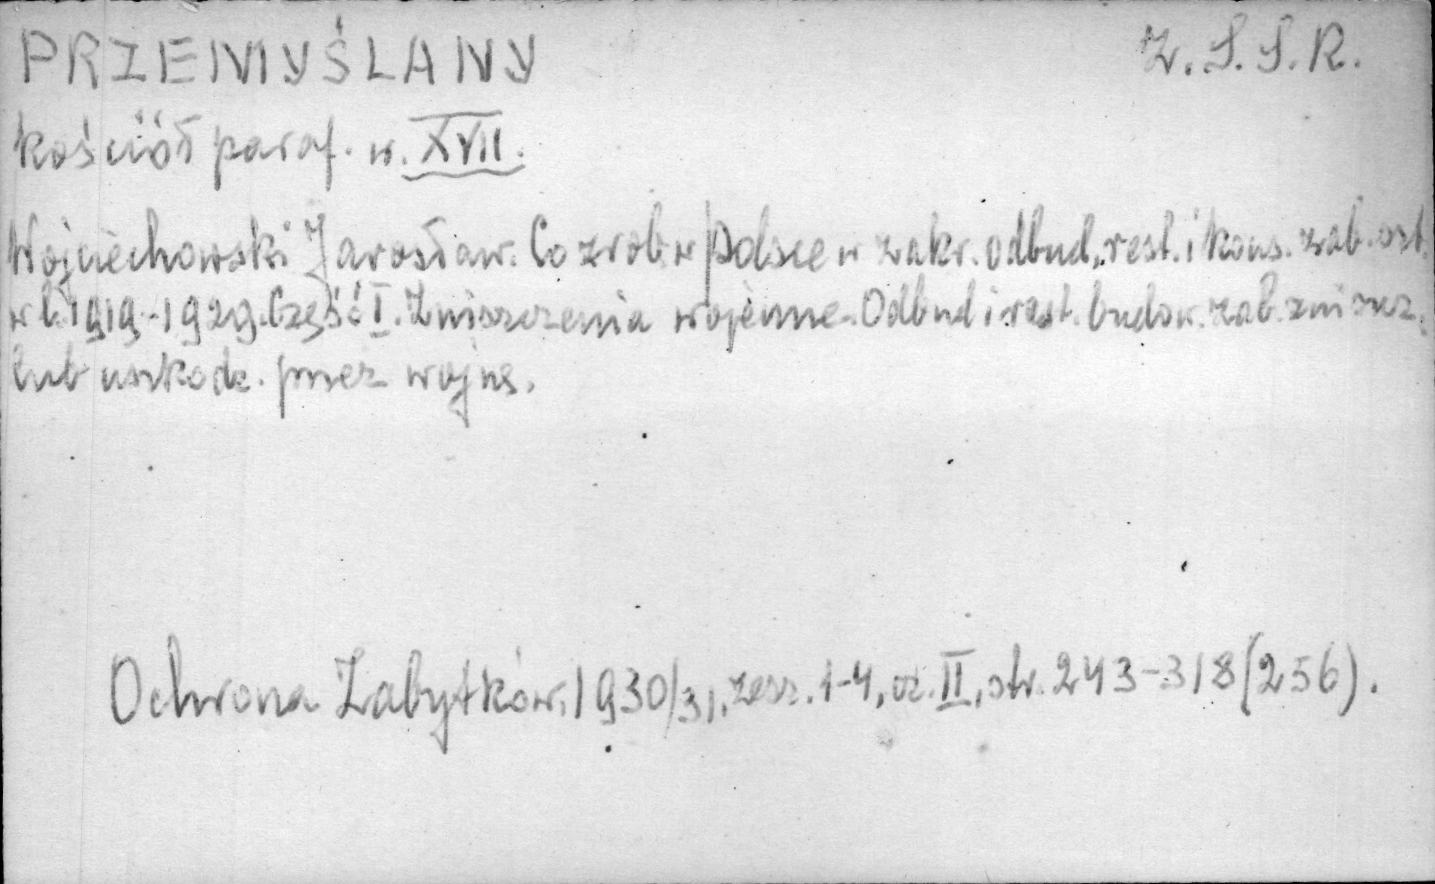 PRZEMYŚLANY Z.S.S.R.
kościół paraf. w. XVII.
Wojciechowski Jarosław. Co zrob. w Polsce w zakr. odbud., rest. i kons. zab. szt.
w l. 1919-1929. Część I. Zniszczenia wojenne. Odbud i rest. budow. zab. zniszcz.
lub uszkodz. przez wojnę.
Ochrona Zabytków, 1930/31, zesz. 1-4, cz. II, str. 243-318 (256).